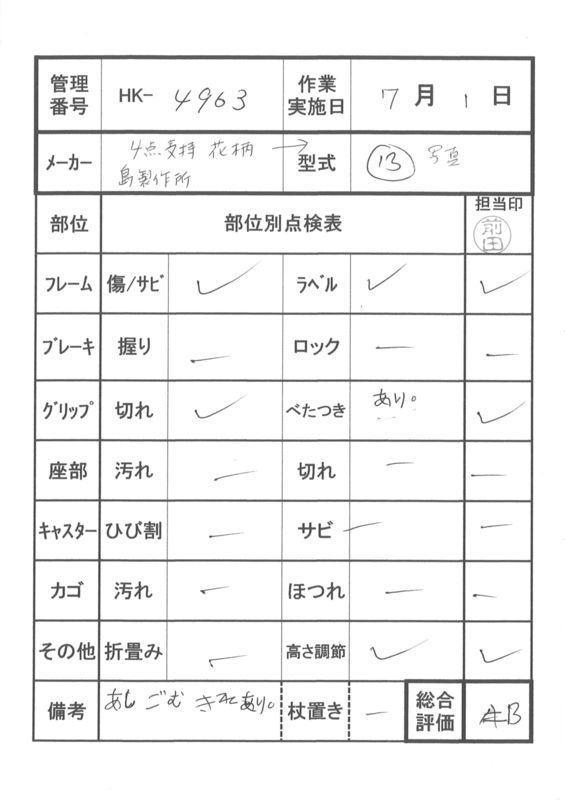 管理番号 HK- 4963 作業実施日 7月1日
メーカー 4点支持 花柄 → 島製作所 型式 13 写真
部位 部位別点検表 担当印 前田
フレーム 傷/サビ ✓ ラベル ✓ ✓
ブレーキ 握り ― ロック ― ―
グリップ 切れ ✓ べたつき あり。 ✓
座部 汚れ ― 切れ ― ―
キャスター ひび割 ― サビ ― ―
カゴ 汚れ ― ほつれ ― ―
その他 折畳み ― 高さ調節 ✓ ✓
備考 あし ごむ きれあり。 杖置き ― 総合評価 B